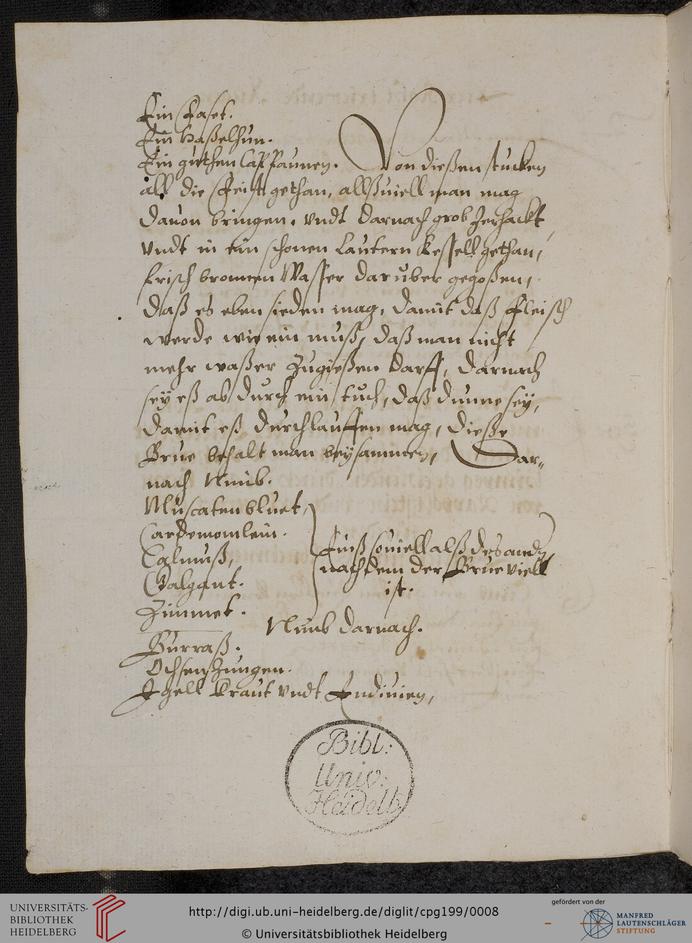 Ein Fasst.
Ein Haßelhun.
Ein guthen Cappaunen. Von dießen stucken
all die Feist gethan, allßuiell man mag
dauon bringen. vndt darnach grob Zerhackt
vndt in ein schonen lautern Kessell gethan,
frisch bronnen Wasser daruber gegoßen,
daß es eben sieden mag, damit daß Fleisch
werde wie ein muß, daß man nicht
mehr waßer Zugießen darff, darnach
sey eß ab durch ein tuch, daß dunne sey,
damit eß durchlauffen mag, dieße
Brue behalt man beysammen, Dar-
nach Nimb.
Muscatenbluet,
Cardemomlein.
Calmuß,
Galgant.
Zimmet.
Einß souiell alß deß andern,
nach dem der Brue viell
ist.
Nimb darnach.
Burraß.
Ochsenzungen.
Igell kraut vndt Endiuien,
Bibl:
Univ:
Heidelb
UNIVERSITÄTS-
BIBLIOTHEK
HEIDELBERG
http://digi.ub.uni-heidelberg.de/diglit/cpg199/0008
© Universitätsbibliothek Heidelberg
gefördert von der
MANFRED
LAUTENSCHLÄGER
STIFTUNG